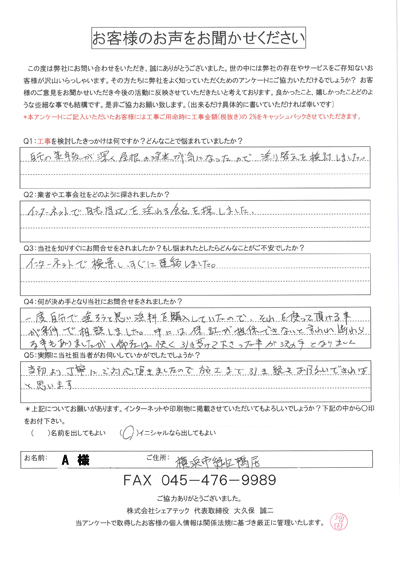 お客様のお声をお聞かせください
この度は弊社にお問い合わせをいただき、誠にありがとうございました。世の中には弊社の存在やサービスをご存知ないお
客様が沢山いらっしゃいます。その方たちに弊社をよく知っていただくためのアンケートにご協力いただけるでしょうか？ お客
様のご意見をお聞かせいただき今後の活動に反映させていただきたいと考えております。良かったこと、嬉しかったことどのよ
うな些細な事でも結構です。是非ご協力お願い致します。（出来るだけ具体的に書いていただければ幸いです）
*本アンケートにご記入いただいたお客様には工事ご用命時に工事金額(税抜き)の 2%をキャッシュバックさせていただきます。
Q1：工事を検討したきっかけは何ですか？どんなことで悩まれていましたか？
塗り替えを検討しました。
Q2：業者や工事会社をどのように探されましたか？
インターネットで自宅周辺を塗れる会社を探しました。
Q3：当社を知りすぐにお問合せをされましたか？もし悩まれたとしたらどんなことがご不安でしたか？
インターネットで検索し、すぐに連絡しました。
Q4：何が決め手となり当社にお問合せをされましたか？
一度自分で塗ろうと思い塗料を購入していたので、それを使って頂ける事
が条件で相談しました。中には保証が担保できないと言われ断わら
る事もありましたが、御社は快く引き受け下さった事が決め手となりました
Q5：実際に当社担当者がお伺いしていかがでしたでしょうか？
当初より丁寧にご対応頂きましたので施工まで引き続きお願いできれば
と思います
＊上記についてお願いがあります。インターネットや印刷物に掲載させていただいてもよろしいでしょうか？下記の中から〇印
をお付下さい。
（ ）名前を出してもよい （〇）イニシャルなら出してもよい
お名前： A 様 ご住所： 横浜市緑区鴨居
FAX 045-476-9989
ご協力ありがとうございました。
株式会社シェアテック 代表取締役 大久保 誠二
当アンケートで取得したお客様の個人情報は関係法規に基づき厳正に管理いたします。